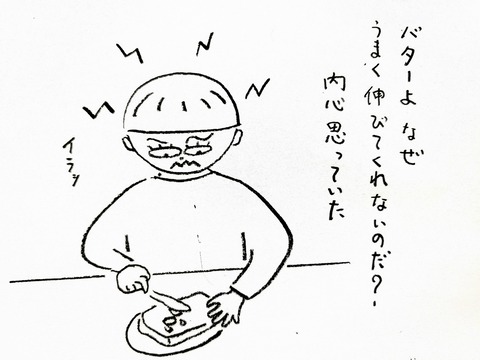 バターよ なぜ
うまく伸びてくれないのだ?
内心思っていた
イラッ